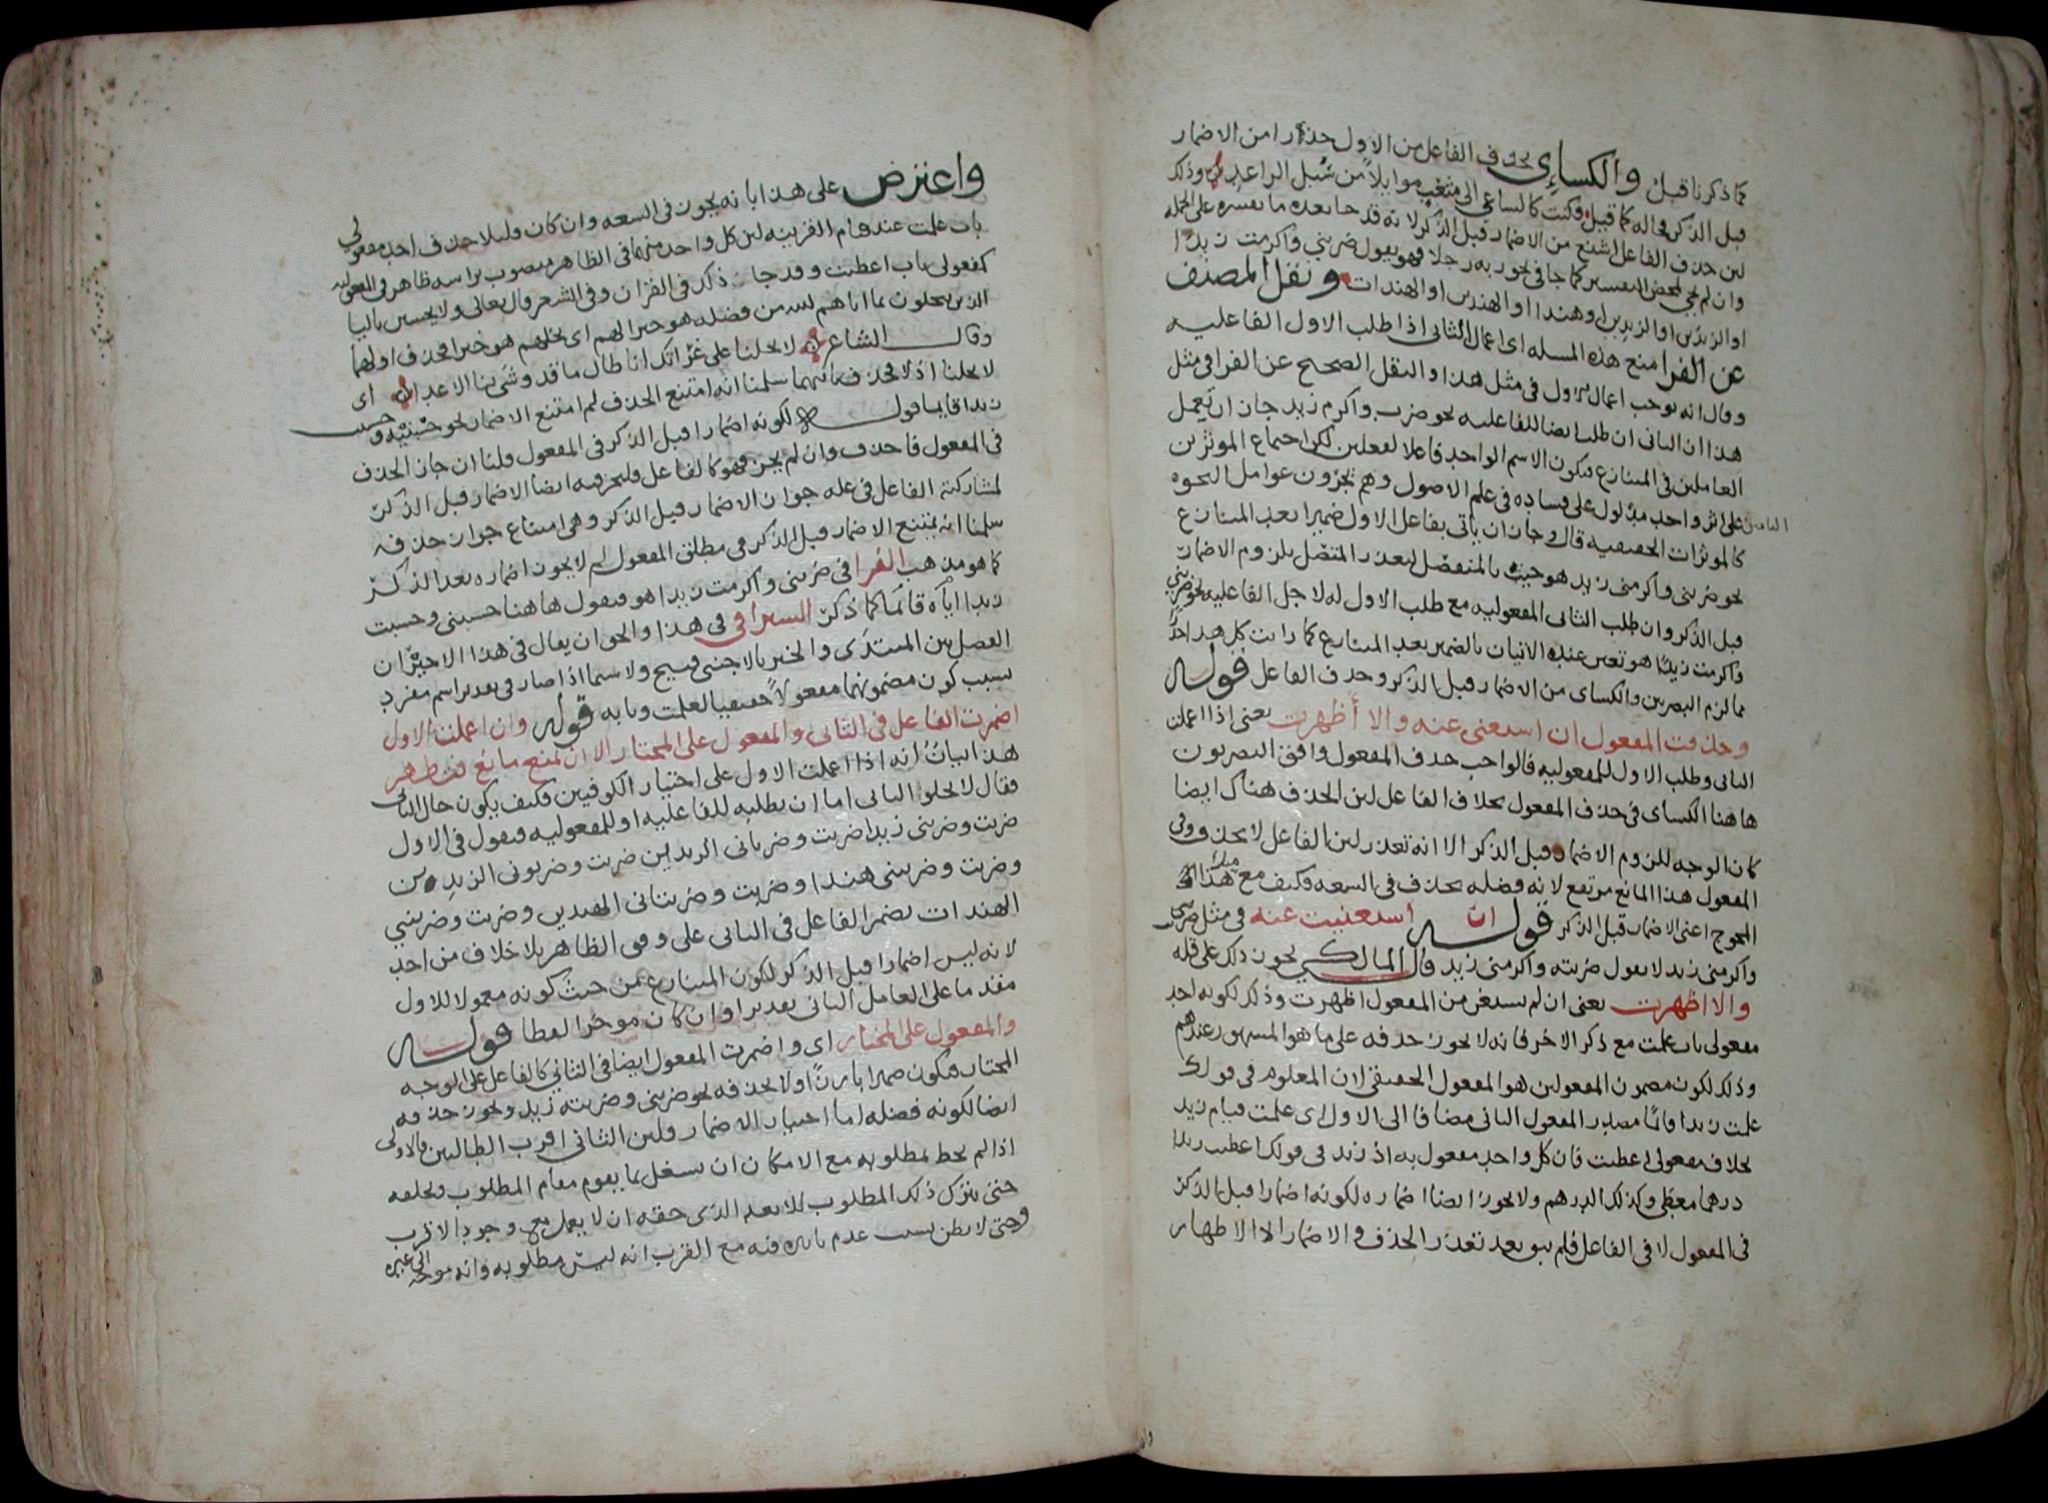 كما ذكرنا قبل والكسائي يحذف الفاعل من الاول حذارا من الاضمار
قبل الذكر فحاله كما قيل فكنت كالساعي الى مثعب موايلا من سبل الراعد وذلك
لان حذف الفاعل اشنع من الاضمار قبل الذكر لانه قد جا بعده ما يفسره على الجملة
وان لم يجئ لمحض التفسير كما جا في نحو ربه رجلا فهو يقول ضربني واكرمت زيدا
او الزيدين او الزيدين او هندا او الهندين او الهندات ونقل المصنف
عن الفرا منع هذه المسله اى اعمال الثاني اذا طلب الاول الفاعليه
وقال انه يوجب اعمال الاول في مثل هذا والنقل الصحيح عن الفرا في مثل
هذا ان الثاني ان طلب ايضا للفاعليه نحو ضرب واكرم زيد جاز ان يعمل
العاملين في المتنازع فيكون الاسم الواحد فاعلا لفعلين لكن اجتماع الموثرين
التامين على اثر واحد مدلول على فساده في علم الاصول وهم يجرون عوامل النحو
كالموثرات الحقيقيه قال وجاز ان ياتي بفاعل الاول ضميرا بعد المتنازع
نحو ضربني واكرمني زيد هو جئت بالمنفصل لتعذر المتصل بلزوم الاضمار
قبل الذكر وان طلب الثاني المفعوليه مع طلب الاول له لاجل الفاعليه نحو ضربني
واكرمت زيدا هو تعين عنده الاتيان بالضمير بعد المتنازع كما رايت كل هذا حذرا
مما لزم البصريين والكسائي من الاضمار قبل الذكر وحذف الفاعل قوله
وحذفت المفعول ان استغنى عنه والا أظهرت يعني اذا اعملت
الثاني وطلب الاول للمفعوليه فالواجب حذف المفعول وافق البصريون
هاهنا الكسائي في حذف المفعول بخلاف الفاعل لان الحذف هناك ايضا
كان الوجه للزوم الاضمار قبل الذكر الا انه تعذر لان الفاعل لا يحذف وفي
المفعول هذا المانع مرتفع لانه فضله يحذف في السعه فكيف مع مثل هذا
المحوج اعني الاضمار قبل الذكر قوله ان استغنيت عنه في مثل ضربني
واكرمني زيد لا يقول ضربته واكرمني زيد قال المالكي يجوز ذلك على قله
والا اظهرت يعني ان لم يستغن من المفعول اظهرت وذلك لكونه احد
مفعولي باب علمت مع ذكر الاخر فانه لا يجوز حذفه على ما هو المشهور عندهم
وذلك لكون مضمون المفعولين هو المفعول الحقيقي لان المعلوم في قولك
علمت زيدا قائما مصدر المفعول الثاني مضافا الى الاول اى علمت قيام زيد
بخلاف مفعولي اعطيت فان كل واحد مفعول به اذ زيد في قولك اعطيت زيدا
درهما معطى وكذلك الدرهم ولا يجوز ايضا اضماره لكونه اضمارا قبل الذكر
في المفعول لا في الفاعل فلم يبق بعد تعذر الحذف والاضمار الا الاظهار
واعترض على هذا بانه يجوز في السعه وان كان قليلا حذف احد مفعولي
باب علمت عند قيام القرينه لان كل واحد منهما في الظاهر منصوب براسه ظاهر في المفعوليه
كمفعولي باب اعطيت وقد جا ذلك في القران وفي الشعر قال تعالى ولا يحسبن باليا
الذين يبخلون بما اتاهم الله من فضله هو خيرا لهم اى بخلهم هو خيرا فحذف اولهما
وقال الشاعر لا تخلنا على غراتك انا طال ما قد وشى بنا الاعداء اى
لا تخلنا اذلا فحذف ثانيهما سلمنا انه امتنع الحذف لم امتنع الاضمار نحو حسبنيه وحسبت
زيدا قايما قوله لكونه اضمارا قبل الذكر في المفعول قلنا ان جاز الحذف
في المفعول فاحذف وان لم يجز فهو كالفاعل فليجز فيه ايضا الاضمار قبل الذكر
لمشاركته الفاعل في عله جواز الاضمار قبل الذكر وهي امتناع جواز حذفه
سلمنا انه يمتنع الاضمار قبل الذكر في مطلق المفعول لم لا يجوز اضماره بعد الذكر
كما هو مذهب الفرا في ضربني واكرمت زيدا هو فيقول هاهنا حسبني وحسبت
زيدا اياه قائما كما ذكر السيرافي في هذا والحق ان يقال في هذا الاخير ان
الفصل بين المبتدى والخبر بالاجنبي قبيح ولا سيما اذا صار في تقدير اسم مفرد
بسبب كون مضمونهما مفعولا حقيقيا لعلمت وبابه قوله وان اعملت الاول
اضمرت الفاعل في الثاني والمفعول على المختار الا ان يمنع مانع فتظهر
هذا بيان انه اذا اعملت الاول على اختيار الكوفيين فكيف يكون حال الثاني
فقال لا يخلو الثاني اما ان يطلبه للفاعليه او للمفعوليه فيقول في الاول
ضربت وضربني زيدا ضربت وضرباني الزيدين ضربت وضربوني الزيدين
وضربت وضربتني هندا وضربت وضربتاني الهندين وضربت وضربنني
الهندات يضمر الفاعل في الثاني على وفق الظاهر بلا خلاف من احد
لانه ليس اضمارا قبل الذكر لكون المتنازع من حيث كونه معمولا للاول
مقدما على العامل الثاني تقديرا وان كان موخرا لفظا قوله
والمفعول على المختار اى واضمرت المفعول ايضا في الثاني كالفاعل على الوجه
المختار فيكون ضميرا بارزا ولا يحذفه نحو ضربني وضربته زيد ويجوز حذفه
ايضا لكونه فضله اما اختيار الاضمار فلان الثاني اقرب الطالبين فالاولى
اذا لم يحظ بمطلوبه مع الامكان ان يشغل بما يقوم مقام المطلوب ويخلفه
حتى يترك ذلك المطلوب للابعد الذي حقه ان لا يعمل مع وجود الاقرب
وحتى لا يظن بسبب عدم تاثيره فيه مع القرب انه ليس مطلوبه وانه موجه الى غيره